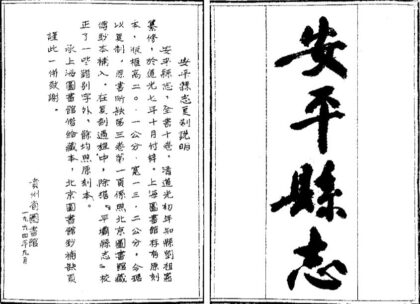 安平縣志
安平縣志复制說明
安平縣志,全書十卷,清道光初年知縣劉祖憲
纂修,於道光七年十月付梓。上海圖書館存有原刻
本,版框高二〇.一公分,寬一三.二公分,今據
以复制,原書所缺第三卷第一頁係照北京圖書館藏
傳鈔本補入,在复制過程中,除据「平壩縣志」校
正了一些錯別字外,餘均照原刻本。
承上海圖書館借給藏本,北京圖書館鈔補缺頁
謹此一併致謝。
貴州省圖書館
一九六四年九月